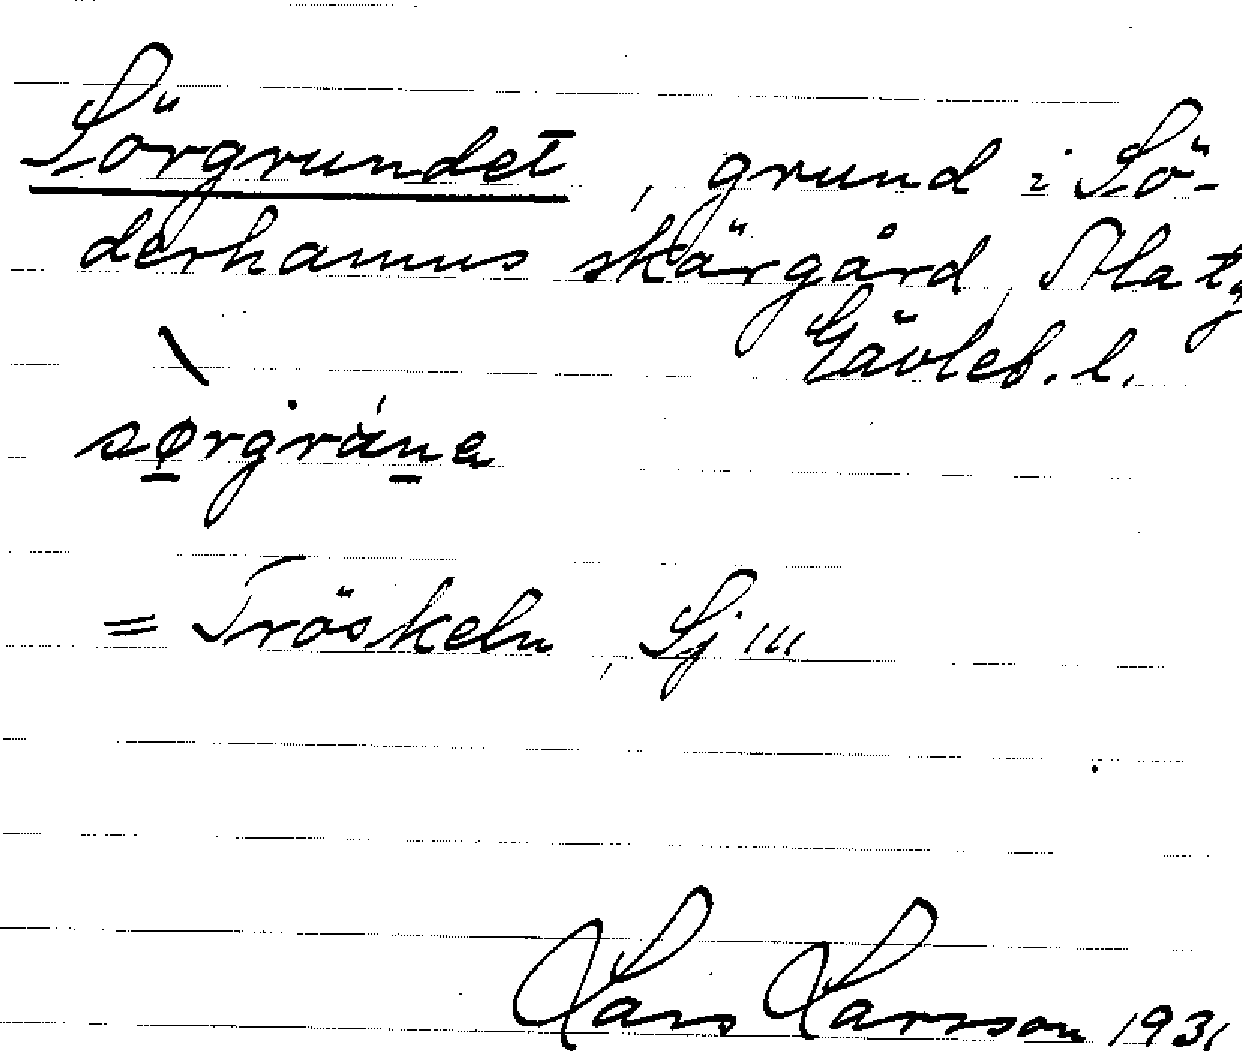 Sörgrundet, grund i Sö-
derhamns skärgård,
Gävleb. l.
= Tröskeln, Sj 111
Lars Larsson 1931